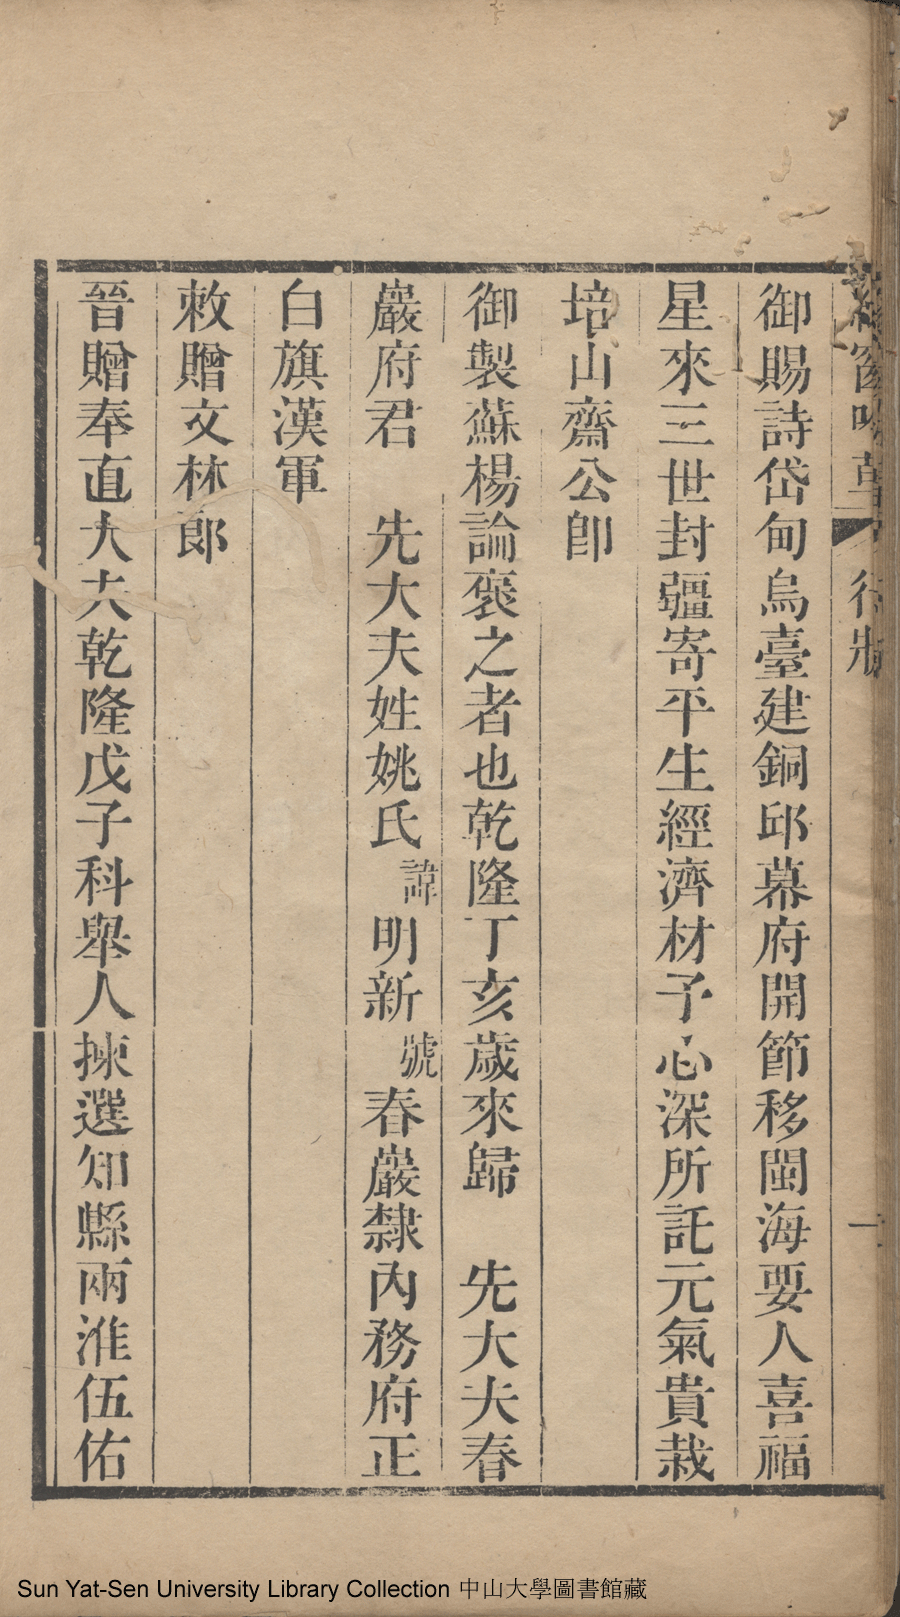 行狀
御賜詩岱甸烏臺建銅邱幕府開節移閩海要人喜福
星來三世封疆寄平生經濟材予心深所託元氣貴栽
培山齋公卽
御製蘇楊論褒之者也乾隆丁亥歲來歸　先大夫春
巖府君　先大夫姓姚氏諱明新號春巖隸內務府正
白旗漢軍
敕贈文林郎
晉贈奉直大夫乾隆戊子科舉人揀選知縣兩淮伍佑
Sun Yat-Sen University Library Collection 中山大學圖書館藏